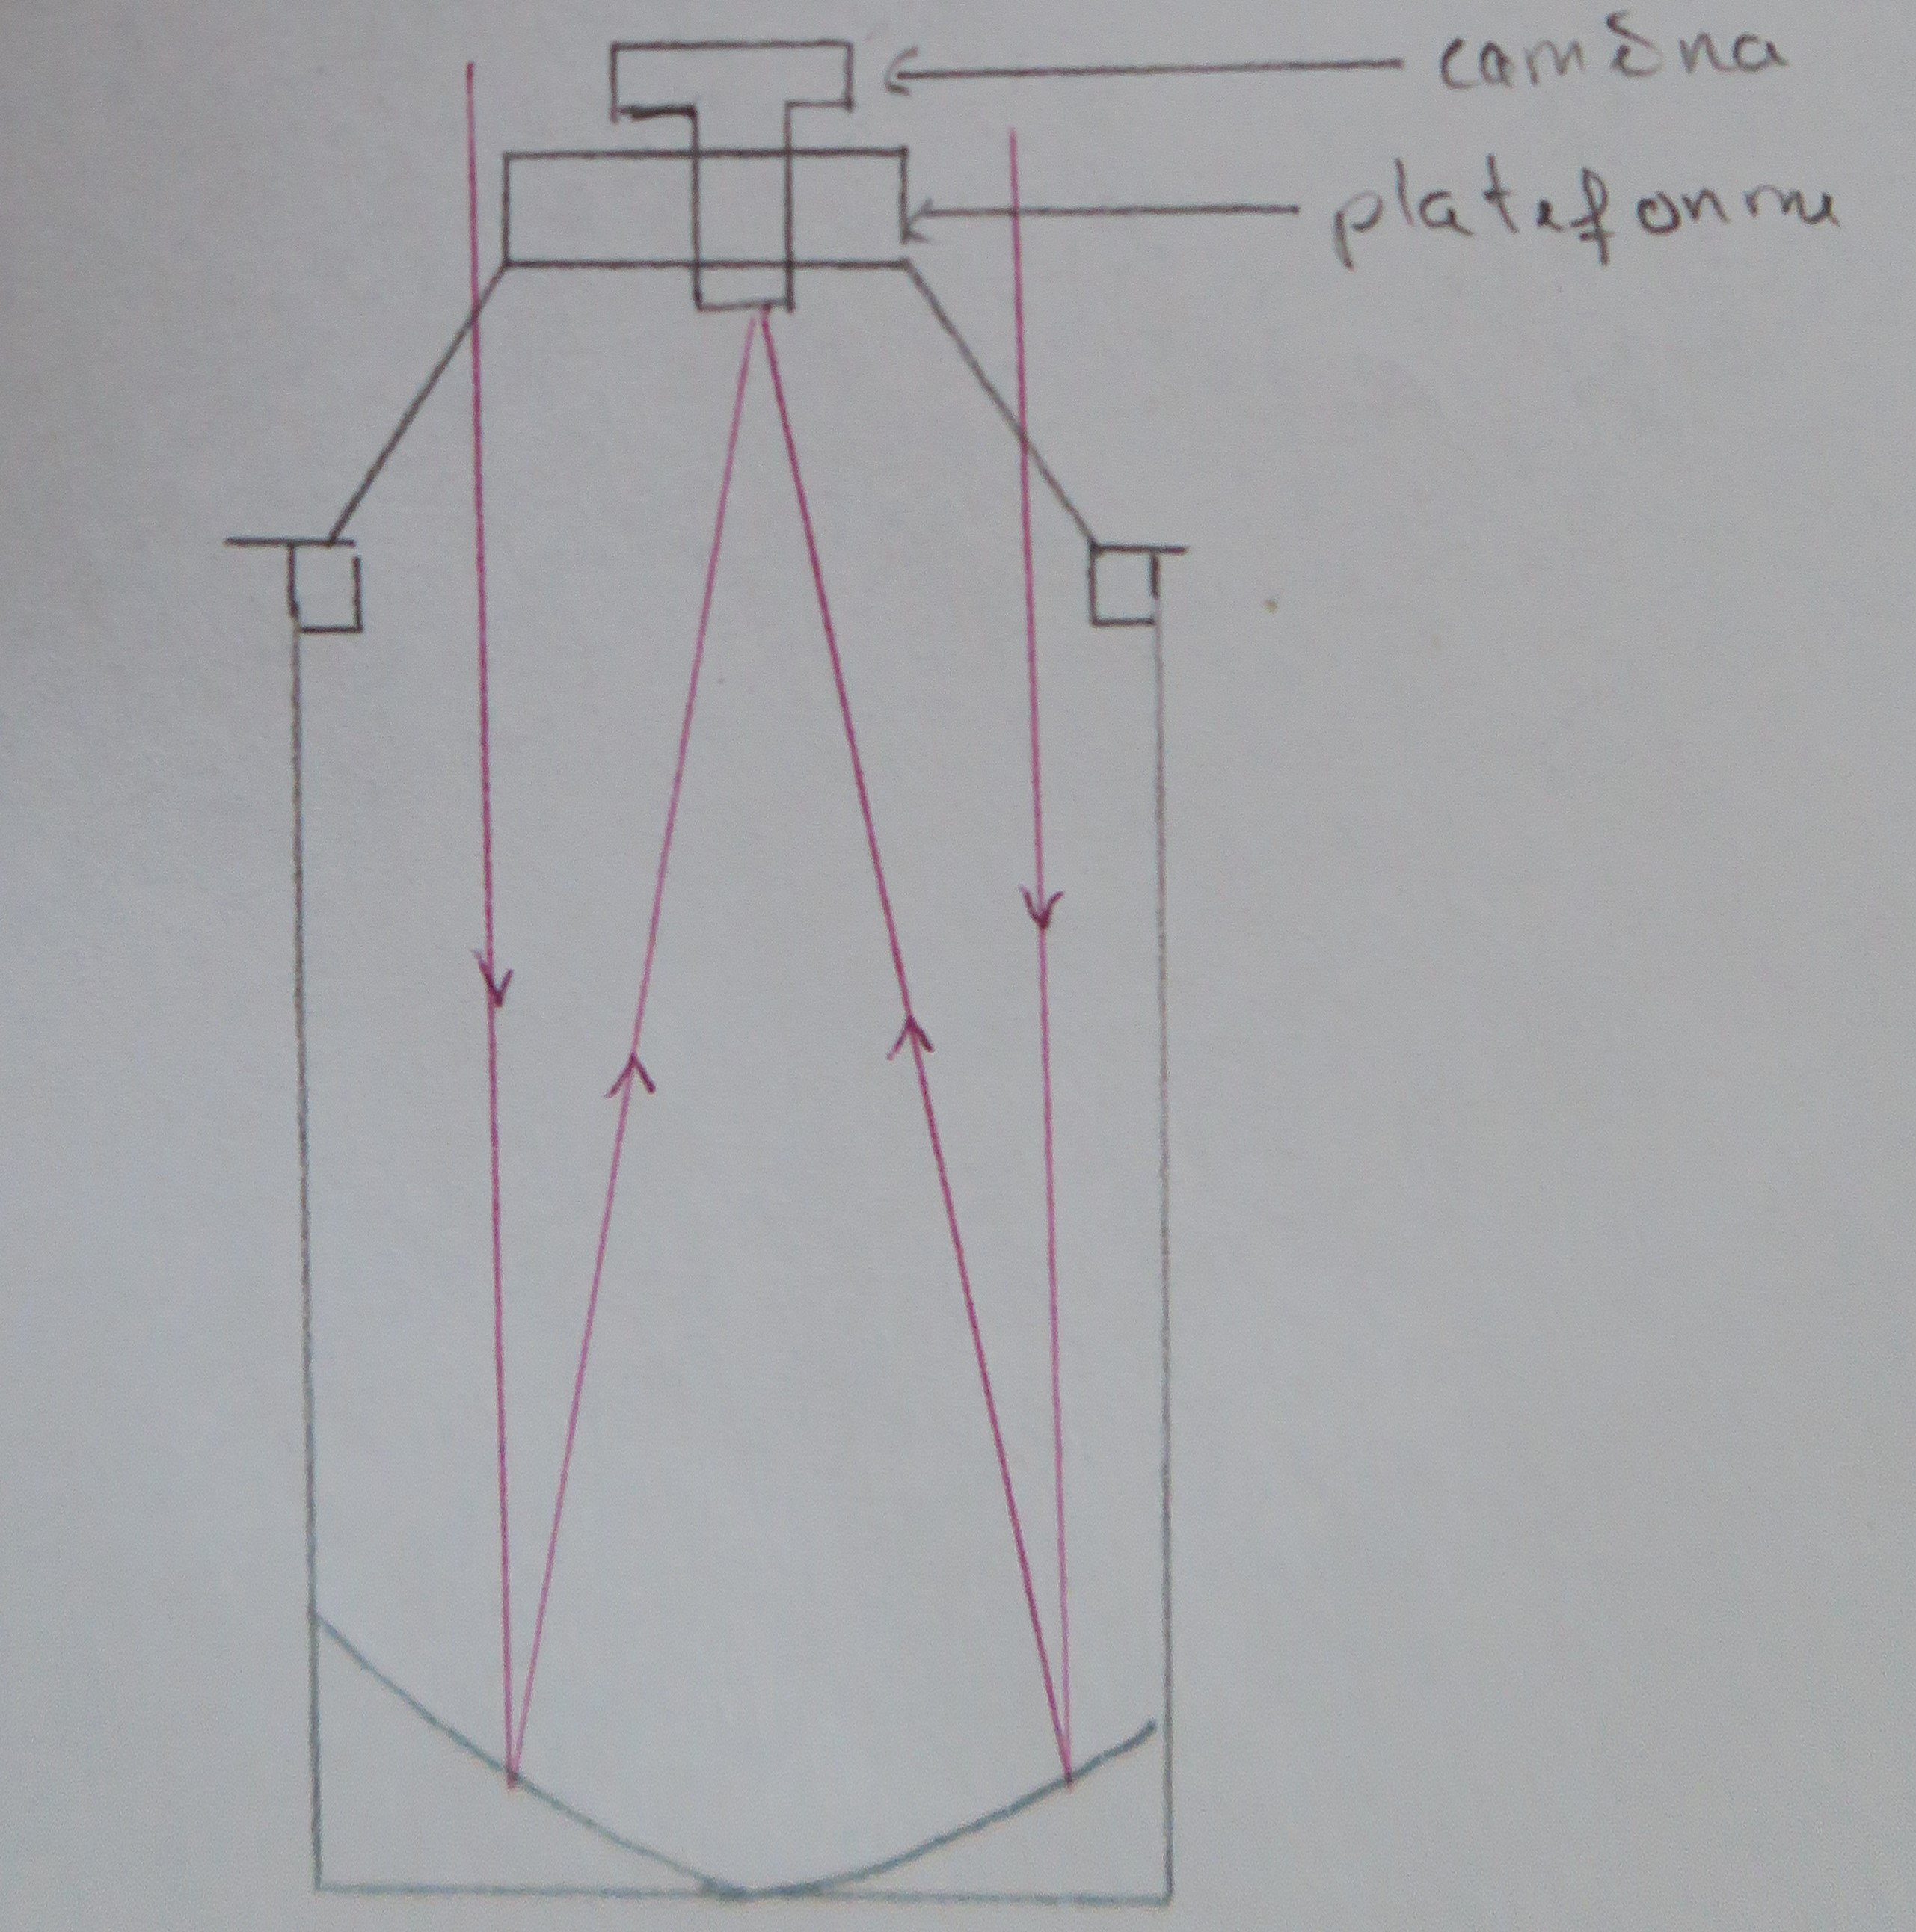 caméra
plateforme